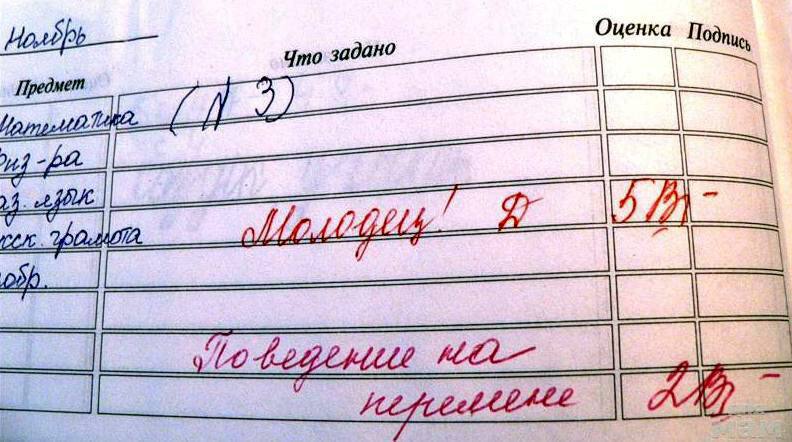 Ноябрь
Что задано
Оценка Подпись
Предмет
Математика (N 3)
физ-ра
аз. язык
Молодец! Д 5
сск. грамота
обр.
Поведение на
перемене 2